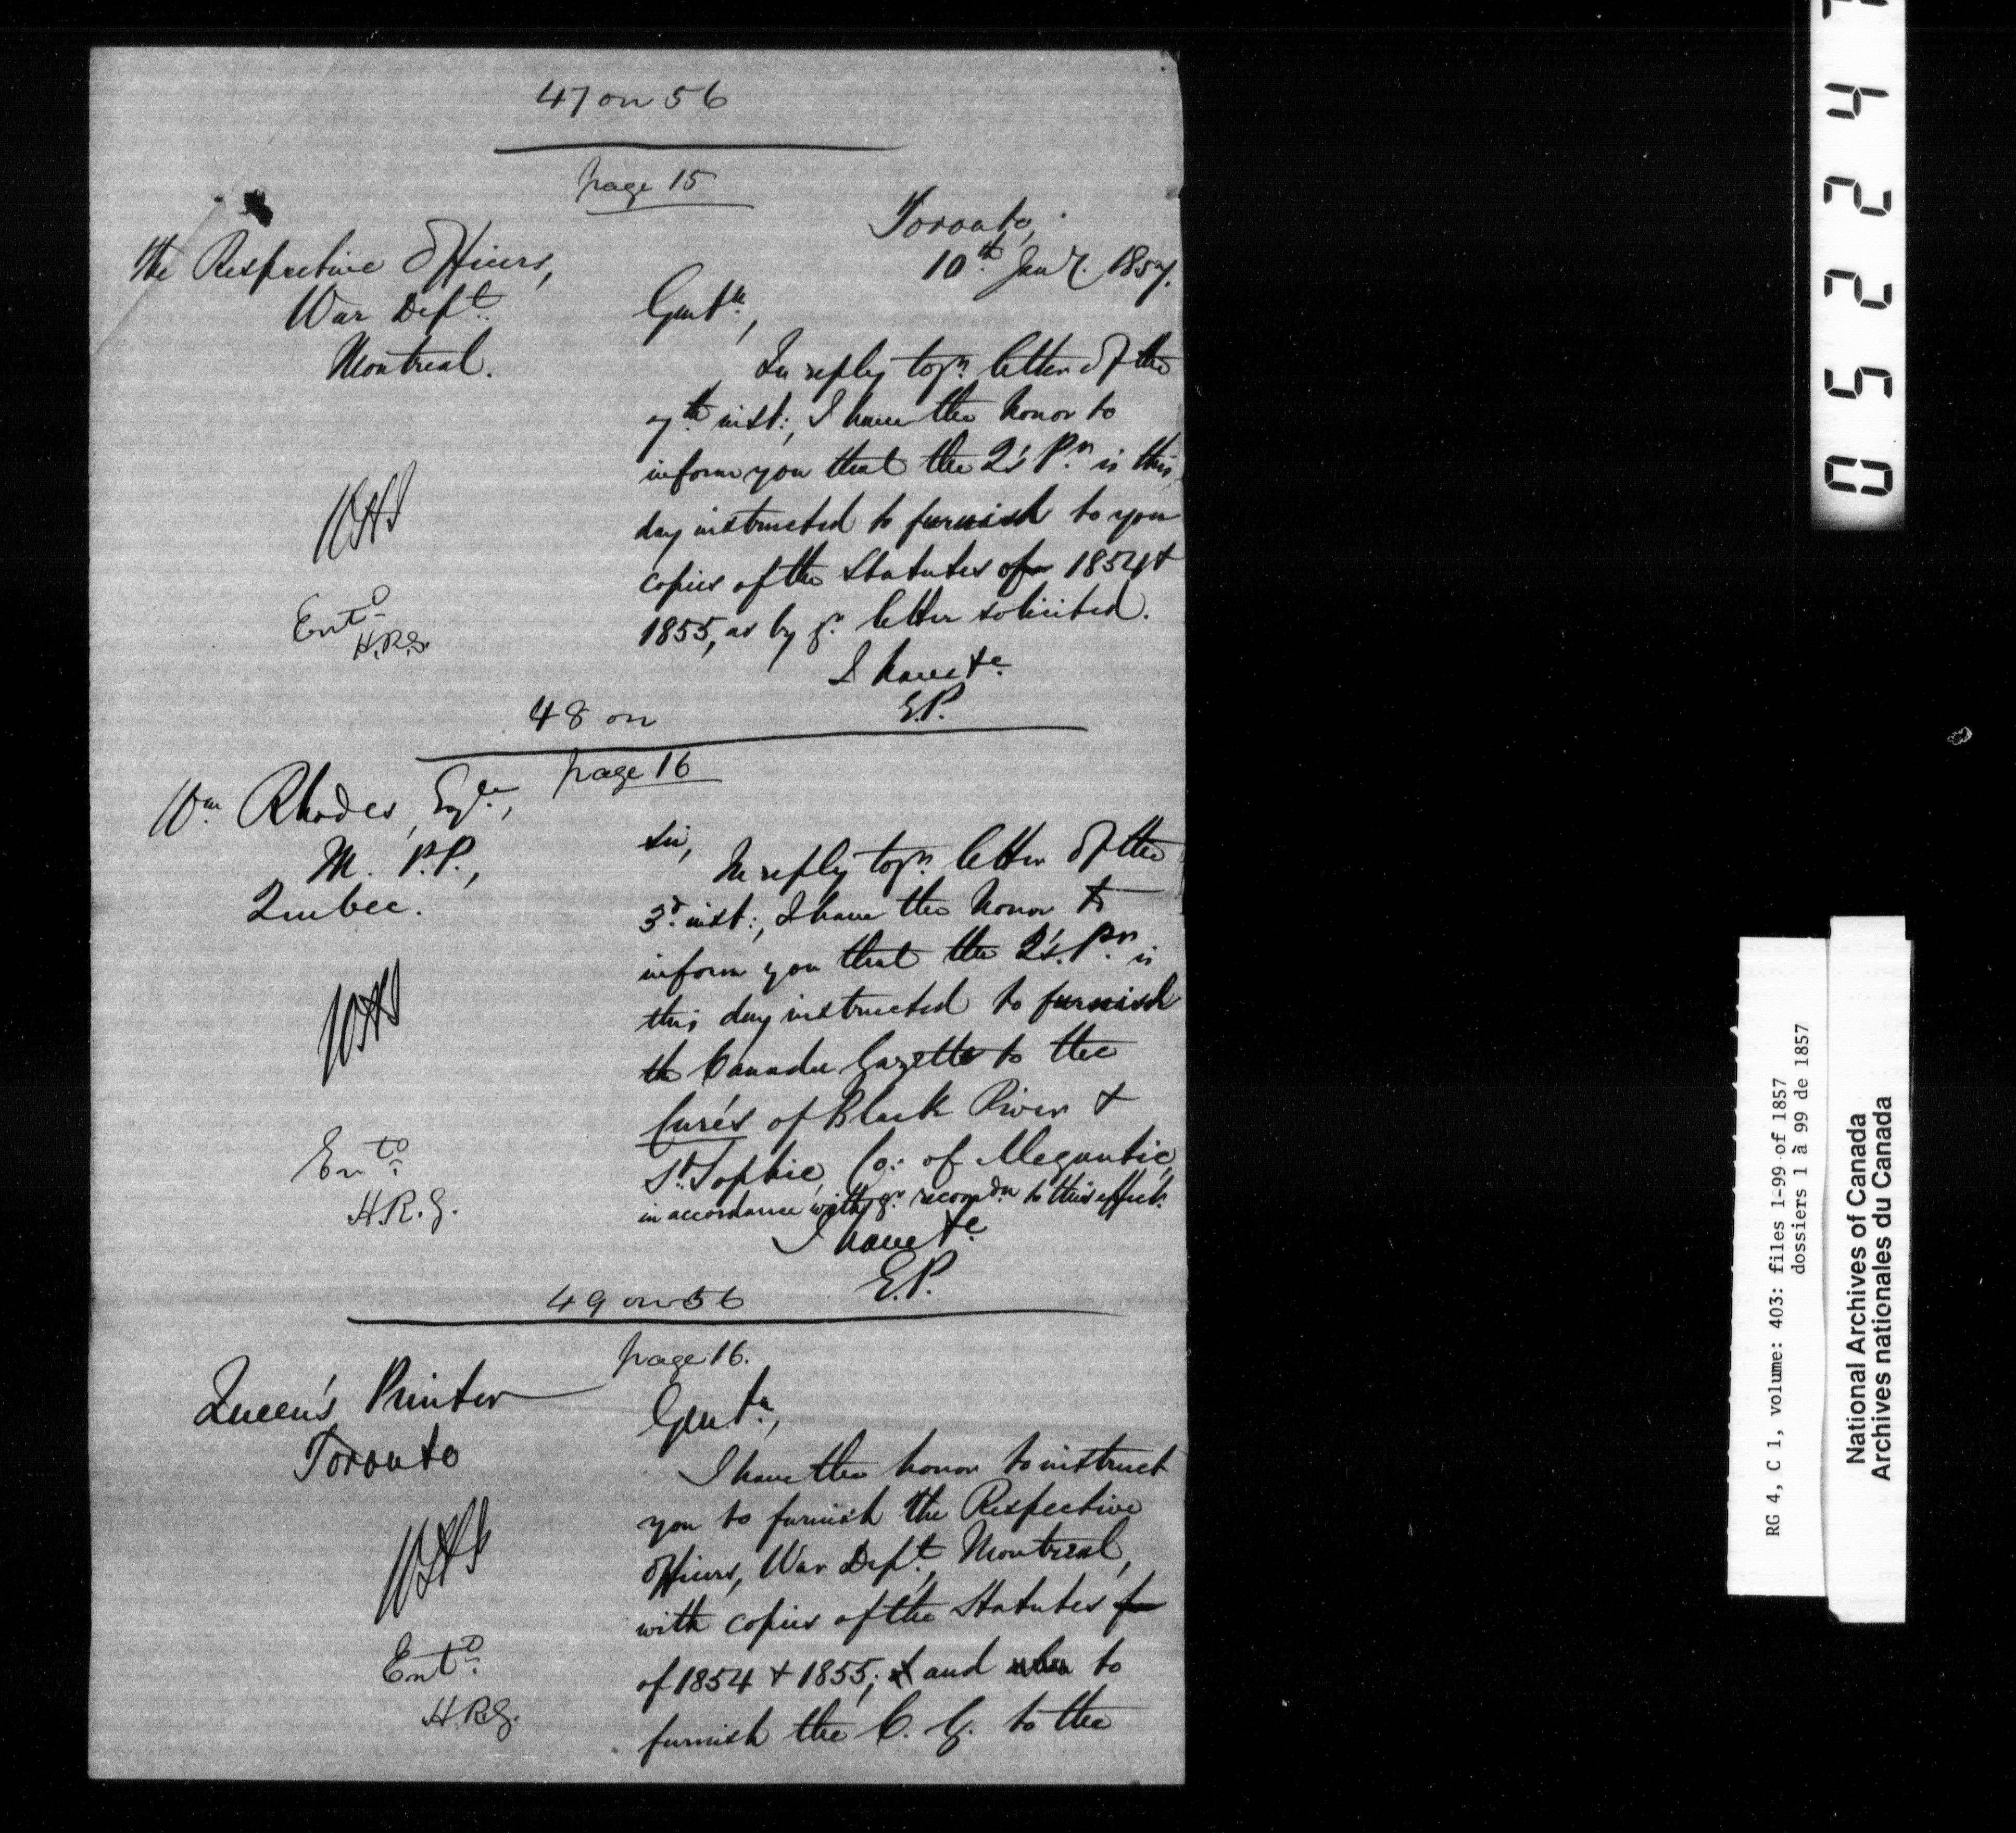 47 on 56
page 15
Toronto,
10th Jany. 1857.
The Respective Officers,
War Dept.
Montreal.
Gentn.,
In reply to yr. letter of the
7th inst:, I have the honor to
inform you that the Q's Pr. is this
day instructed to furnish to you
copies of the Statutes of 1854 &
1855, as by yr. letter solicited.
I have &c.
E.P.
Entd.
H.R.G.
48 on
page 16
Wm. Rhodes, Esqre.,
M. P.P.,
Quebec.
Sir,
In reply to yr. letter of the
3d. inst:, I have the honor to
inform you that the Q's. Pr. is
this day instructed to furnish
the Canada Gazette to the
Curés of Black River &
St. Sophie, Co: of Megantic,
in accordance with yr. recomdn. to this effect.
I have &c
E.P.
Entd.
H.R.G.
49 on 56
page 16.
Queen's Printer
Toronto
Gentn.,
I have the honor to instruct
you to furnish the Respective
Officers, War Dept., Montreal,
with copies of the Statutes for
of 1854 & 1855; & and to
furnish the C. G. to the
Entd.
H.R.G.
0 5 2 2 4
RG 4, C 1, volume: 403: files 1-99 of 1857
dossiers 1 à 99 de 1857
National Archives of Canada
Archives nationales du Canada